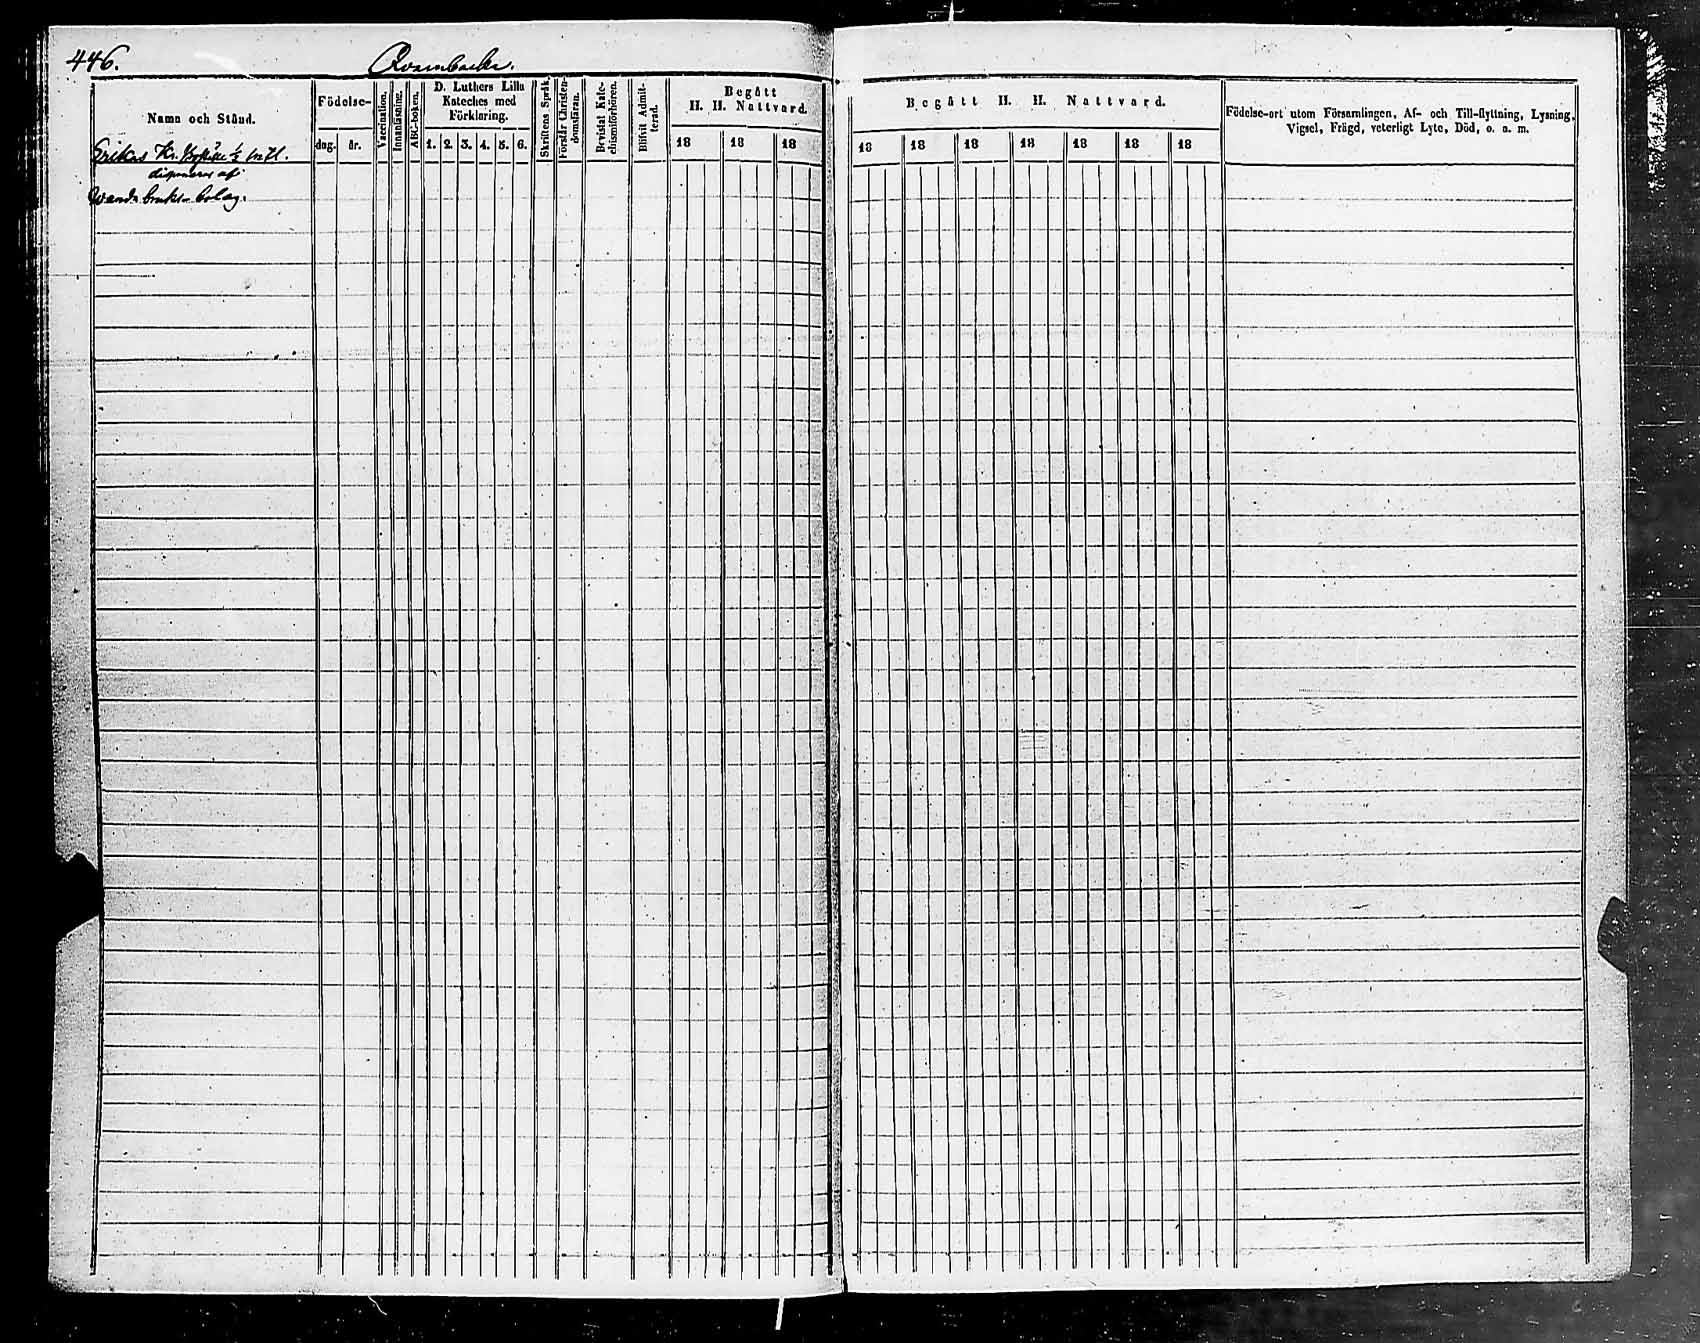 446. Qvarnbacka.
Namn och Stånd.
Födelse-
dag. år.
Vaccination.
Innanläsning.
ABC-boken.
D. Luthers Lilla
Kateches med
Förklaring.
1. 2. 3. 4. 5. 6.
Skriftens Språk.
Förstår Christen-
domsläran.
Bevistat Kate-
chismiförhören.
Blifvit Admit-
terad.
Begått
H. H. Nattvard.
18 18 18
Begått H. H. Nattvard.
18 18 18 18 18 18 18
Födelse-ort utom Församlingen, Af- och Till-flyttning, Lysning,
Vigsel, Frägd, veterligt Lyte, Död, o. s. m.
Kr. 1/2 mtl.
disponeras af
bruks bolag.